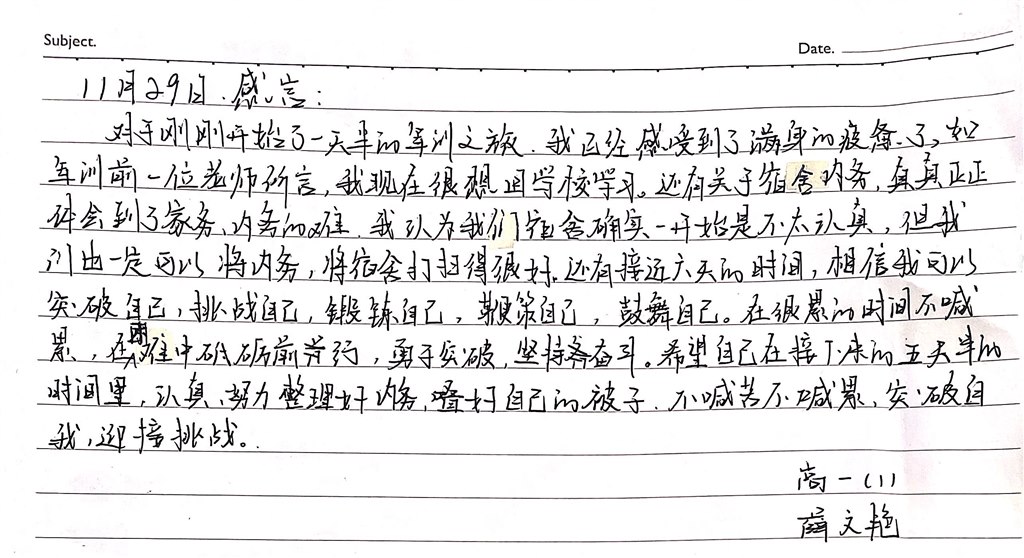 Subject.
Date.
11月29日.感言:
对于刚刚开始了一天半的军训之旅.我已经感受到了满身的疲惫了。如
军训前一位老师所言,我现在很想回学校学习。还有关于宿舍内务,真真正正
体会到了家务、内务的难.我认为我们宿舍确实一开始是不太认真,但我
们也一定可以将内务,将宿舍打扫得很好.还有接近六天的时间,相信我可以
突破自己,挑战自己,锻炼自己,鞭策自己,鼓舞自己。在很累的时间不喊
累,在困难中砥砺前行,勇于突破,坚持奋斗。希望自己在接下来的五天半的
时间里,认真、努力整理好内务,叠好自己的被子.不喊苦不喊累,突破自
我,迎接挑战。
高一(1)
薛文艳